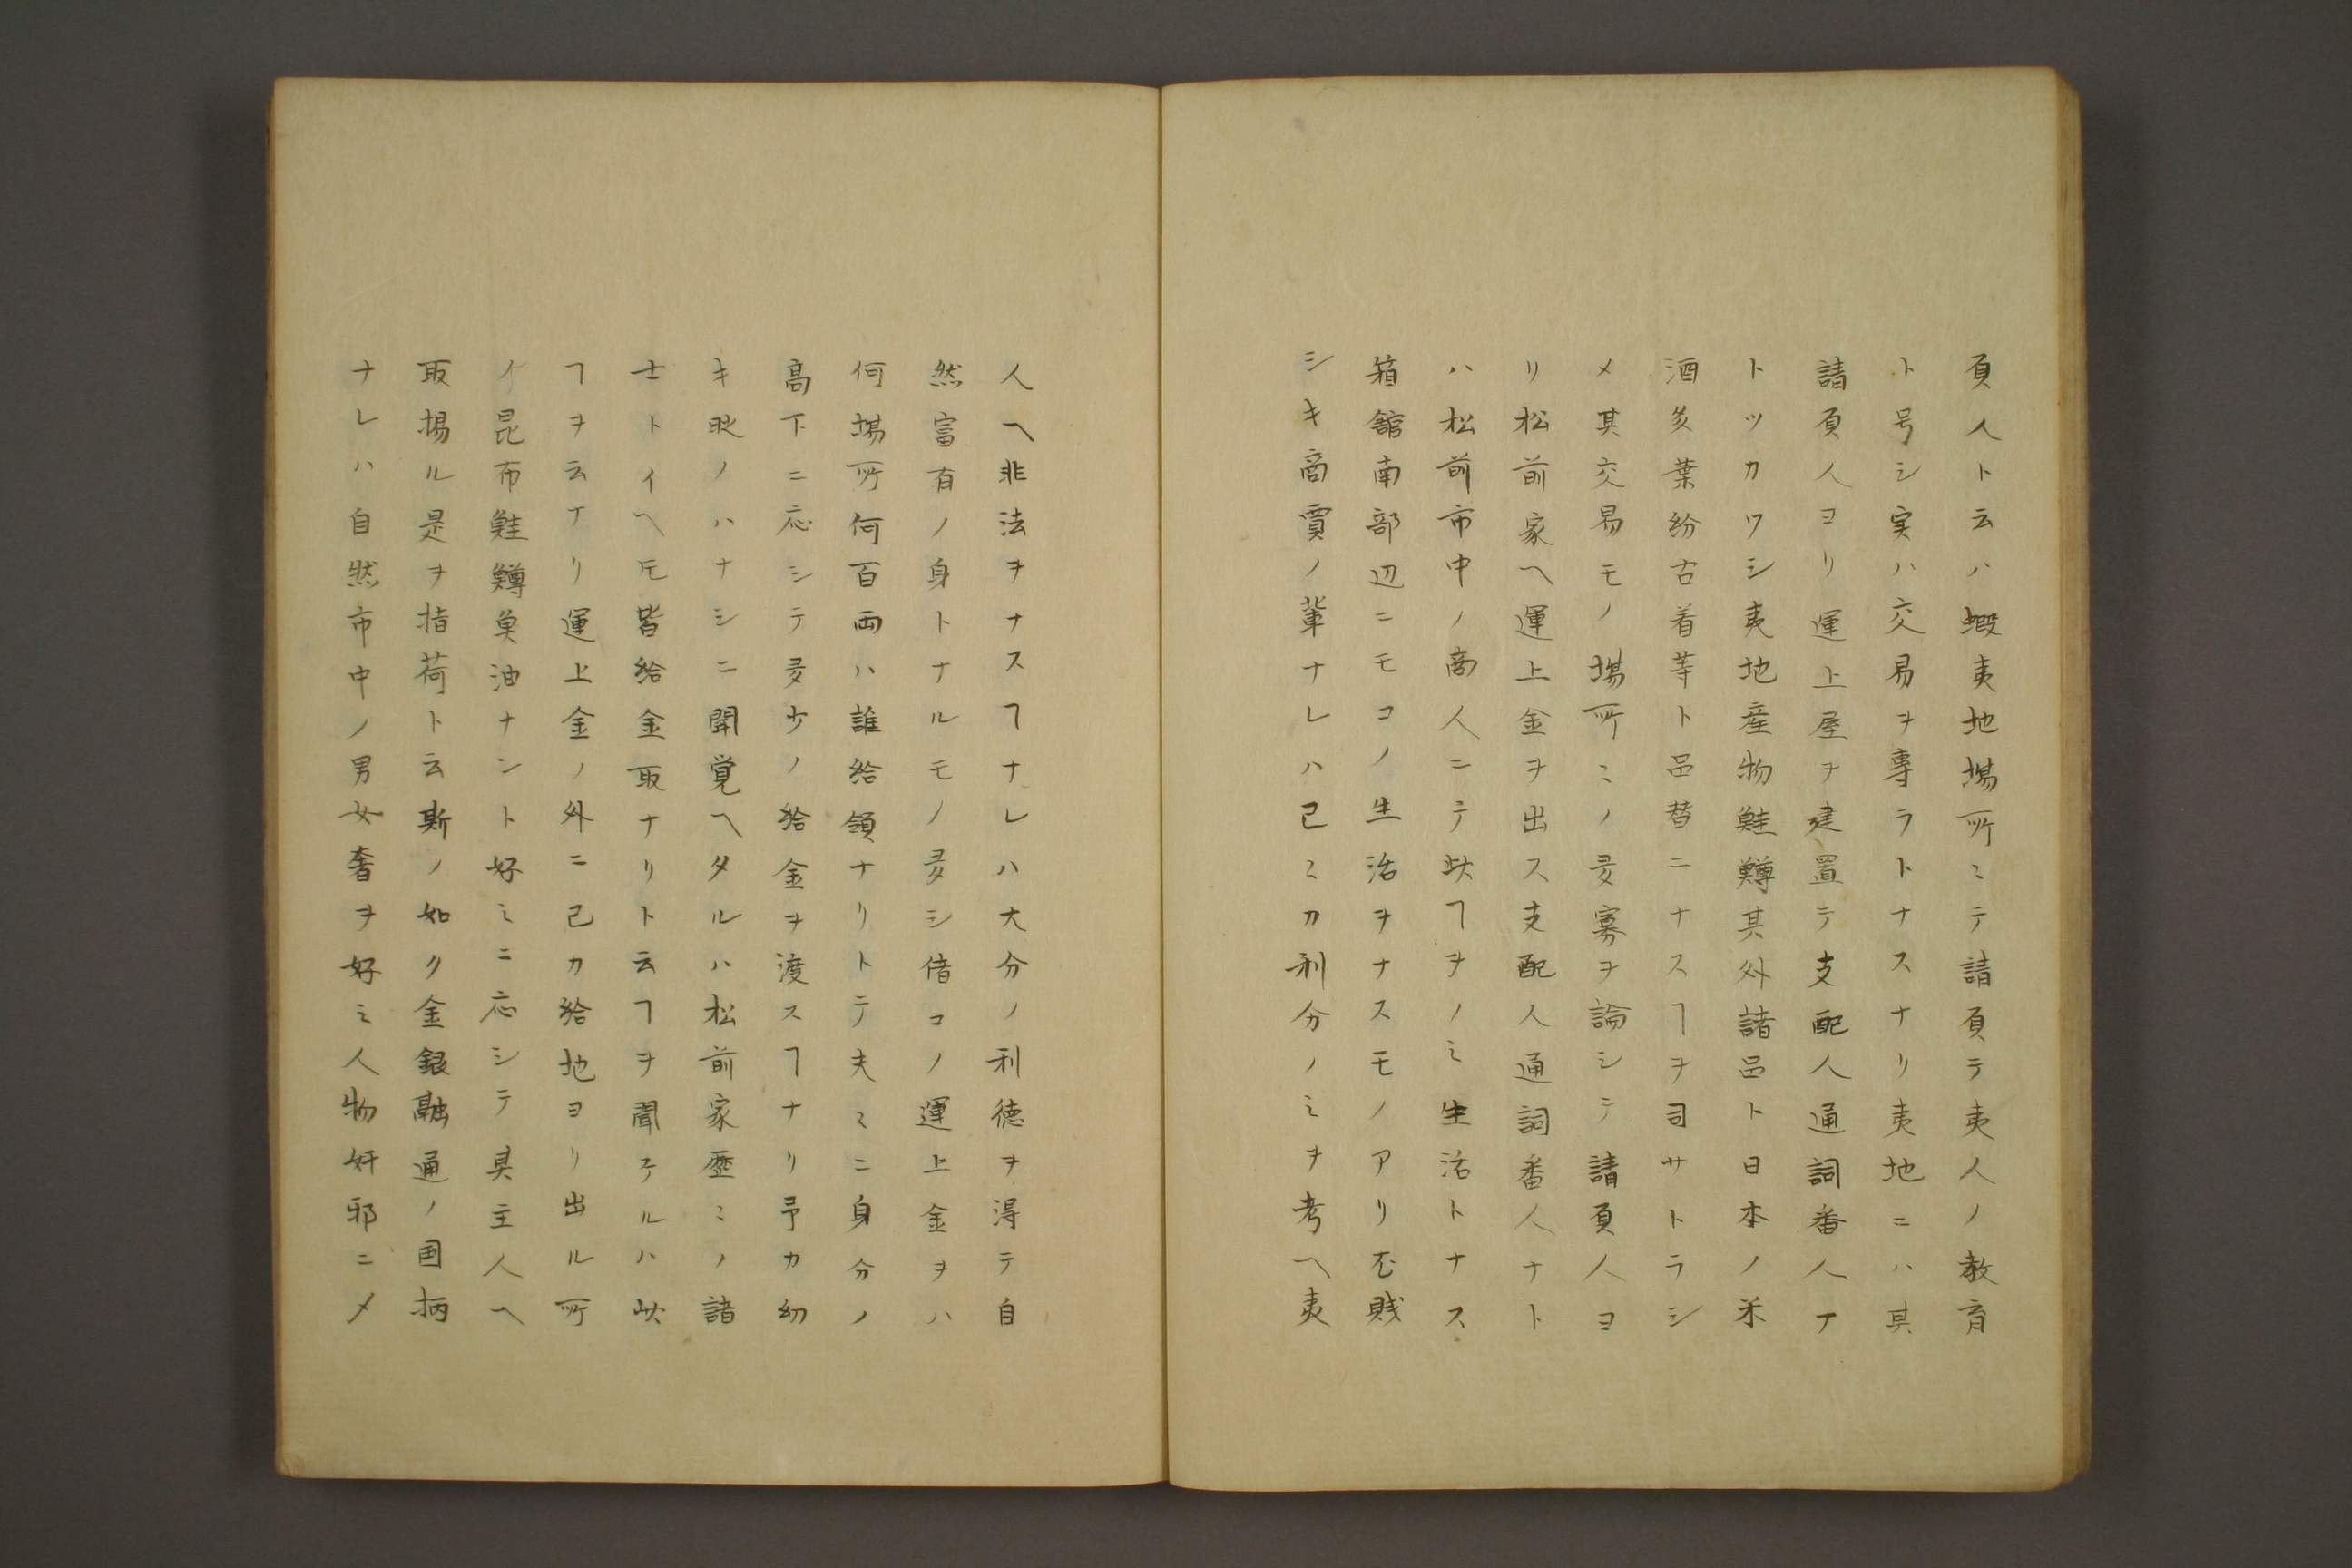 負人ト云ハ蝦夷地場所〻テ請負テ夷人ノ教育
ト号シ実ハ交易ヲ専ラトナスナリ夷地ニハ其
請負人ヨリ運上屋ヲ建置テ支配人通詞番人ナ
トツカワシ夷地産物鮭鱒其外諸品ト日本ノ米
酒多葉粉古着等ト品替ニナスヿヲ司サトラシ
メ其交易モノ場所〻ノ多寡ヲ論シテ請負人ヨ
リ松前家ヘ運上金ヲ出ス支配人通詞番人ナト
ハ松前市中ノ商人ニテ此ヿヲノミ生活トナス
箱館南部辺ニモコノ生活ヲナスモノアリ至賎
シキ商賈ノ輩ナレハ已〻カ利分ノミヲ考ヘ夷
人ヘ非法ヲナスヿナレハ大分ノ利徳ヲ得テ自
然富有ノ身トナルモノ多シ偖コノ運上金ヲハ
何場所何百両ハ誰給領ナリトテ夫〻ニ身分ノ
高下ニ応シテ多少ノ給金ヲ渡スヿナリ予カ幼
キ時ノハナシニ聞覚ヘタルハ松前家歴〻ノ諸
士トイヘ𪜈皆給金取ナリト云ヿヲ聞テルハ此
ヿヲ云ナリ運上金ノ外ニ己カ給地ヨリ出ル所
ノ昆布鮭鱒魚油ナント好ミニ応シテ其主人ヘ
取揚ル是ヲ指荷ト云斯ノ如ク金銀融通ノ国柄
ナレハ自然市中ノ男女奢ヲ好ミ人物奸邪ニ〆